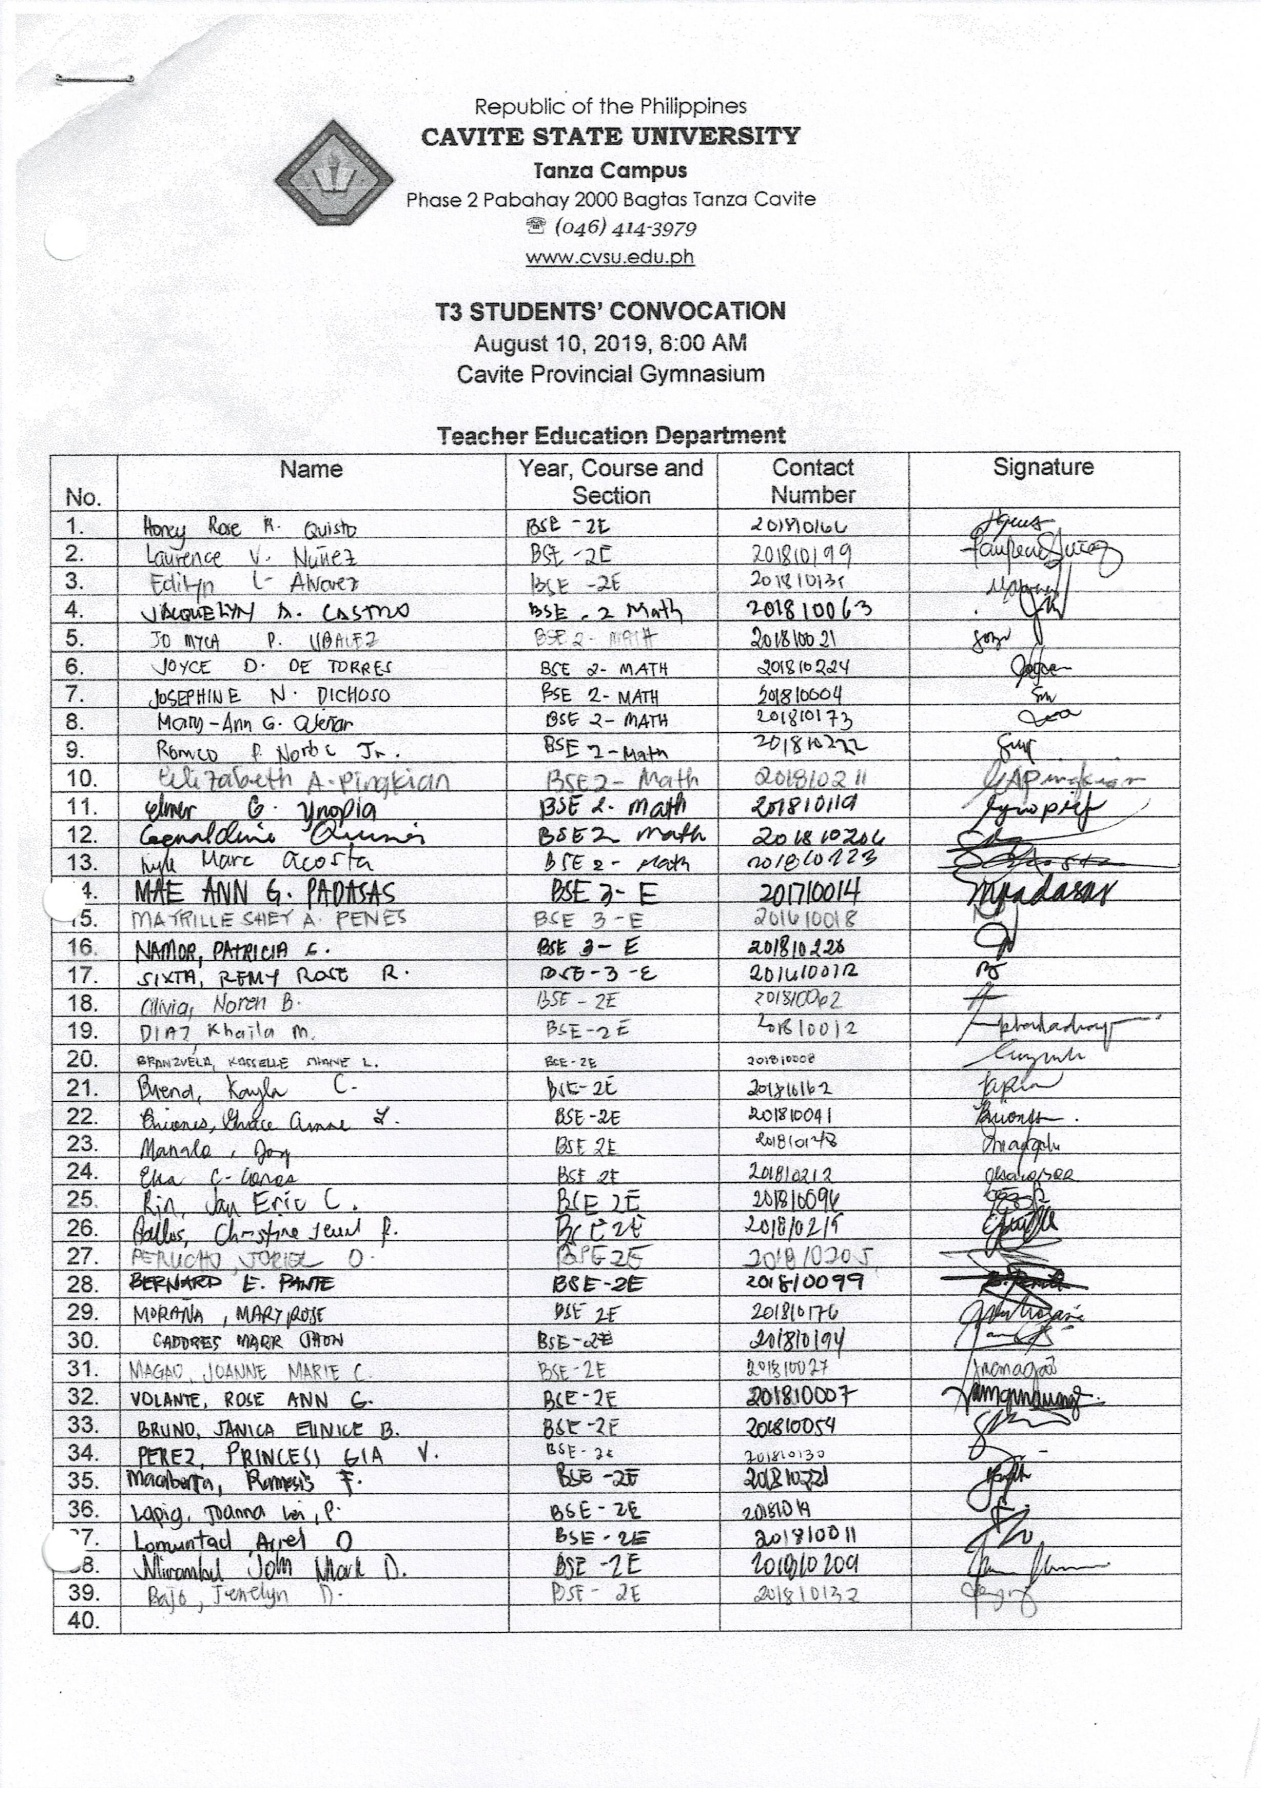 Republic of the Philippines
CAVITE STATE UNIVERSITY
Tanza Campus
Phase 2 Pabahay 2000 Bagtas Tanza Cavite
☏ (046) 414-3979
www.cvsu.edu.ph
T3 STUDENTS' CONVOCATION
August 10, 2019, 8:00 AM
Cavite Provincial Gymnasium
Teacher Education Department
No. Name Year, Course and Section Contact Number Signature
1. Honey Rose M. Quisto BSE - 2E 201810166
2. Laurence V. Nuñez BSE - 2E 201810199
3. Edilyn L. Alvarez BSE - 2E
4. JAQUELYN A. CASTRO BSE - 2 Math 201810063
5. JO MYCA P. UBALEZ BSE 2 - MATH 201810021
6. JOYCE D. DE TORRES BSE 2 - MATH 201810224
7. JOSEPHINE N. DICHOSO BSE 2 - MATH 201810004
8. Mary-Ann G. BSE 2 - MATH 201810173
9. Romeo P. Jr. BSE 2 - Math 201810222
10. Elizabeth A. Pingkian BSE 2 - Math 201810211
11. Elmer G. Ynopia BSE 2 - Math 201810119
12. BSE 2 Math 201810206
13. Kyle Marc Acosta BSE 2 - Math 201810223
4. MAE ANN G. PADASAS BSE 3 - E 201710014 mpadasas
15. MAYRILLE SHEY A. PENES BSE 3 - E 201610018
16. NAMOR, PATRICIA G. BSE 3 - E 201810226
17. SIXTA, REMY ROSE R. BSE - 3 - E 201610012
18. Olivia, Noren B. BSE - 2E 201810062
19. DIAZ Khaila M. BSE - 2E 201810012
20. BRANZUELA, SHANE L. BSE - 2E 201810008
21. Buend, Kayla C. BSE - 2E 201810162
22. Briones, Grace Anne L. BSE - 2E 201810041
23. Manalo, Joy BSE 2E 201810148
24. Elsa C. BSE 2E 201810212
25. Rin, Jan Eric C. BSE 2E 201810096
26. Christine P. BSE 2E 201810215
27. PERUCHO, JORIEL O. BSE 2E 201810205
28. BERNARD E. PANTE BSE - 2E 201810099
29. MORAÑA, MARY ROSE BSE 2E 201810176
30. CADORES MARK JHON BSE - 2E 201810194
31. MAGAO, JOANNE MARIE C. BSE - 2E 201810027
32. VOLANTE, ROSE ANN G. BSE - 2E 201810007
33. BRUNO, JANICA EUNICE B. BSE - 2E 201810054
34. PEREZ, PRINCESS GIA V. BSE - 2E 201810130
35. Ramesis F. BSE - 2E 201810221
36. Lapig, Joanna Lei, P. BSE - 2E
37. Lomuntad, Arrel O BSE - 2E 201810011
38. Mirambel John Mark D. BSE - 2E 201810209
39. Bajo, Jenelyn D. BSE - 2E 201810132
40.